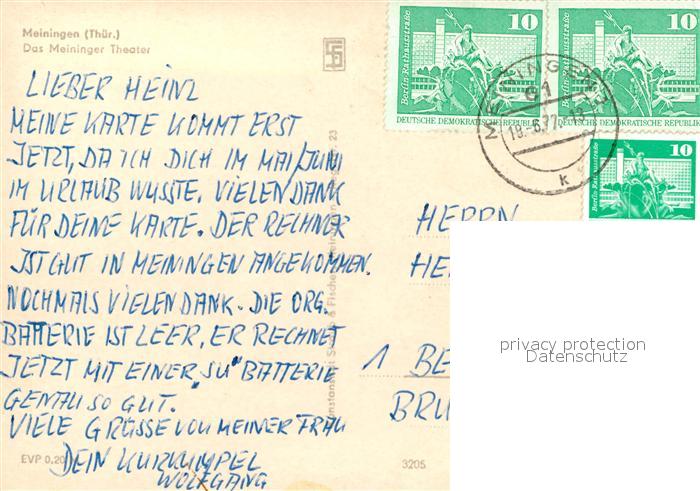 Meiningen (Thür.)
Das Meininger Theater
LIEBER HEINZ
MEINE KARTE KOMMT ERST
JETZT, DA ICH DICH IM MAI/JUNI
IM URLAUB WUSSTE. VIELEN DANK
FÜR DEINE KARTE. DER RECHNER
IST GUT IN MEININGEN ANGEKOMMEN.
NOCHMALS VIELEN DANK. DIE ORG.
BATTERIE IST LEER, ER RECHNET
JETZT MIT EINER "SU" BATTERIE
GENAU SO GUT.
VIELE GRÜSSE VON MEINER FRAU
DEIN KURKUMPEL
WOLFGANG
EVP 0,20
3205
10
Berlin-Rathausstraße
DEUTSCHE DEMOKRATISCHE REPUBLIK
10
Berlin-Rathausstraße
DEUTSCHE DEMOKRATISCHE REPUBLIK
10
Berlin-Rathausstraße
MEININGEN
61
18.-6.77
k
HERRN
HE
1 BE
BRU
privacy protection
Datenschutz